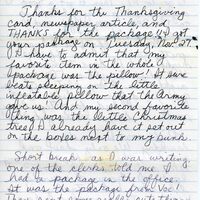 Thanks for the Thanksgiving
card, newspaper article, and
THANKS for the package (4) I got
your package on Tuesday, Nov. 27.
I have to admit that my
favorite item in the whole
package was the pillow! It sure
beats sleeping on the little
inflatable pillow that the Army
gave us! And my second favorite
thing was the little Christmas
tree! I already have it set out
on the boxes next to my bunk
Short break as I was writing
one of the clerks told me I
had a package in the office.
It was the package from Voc!
They sent some